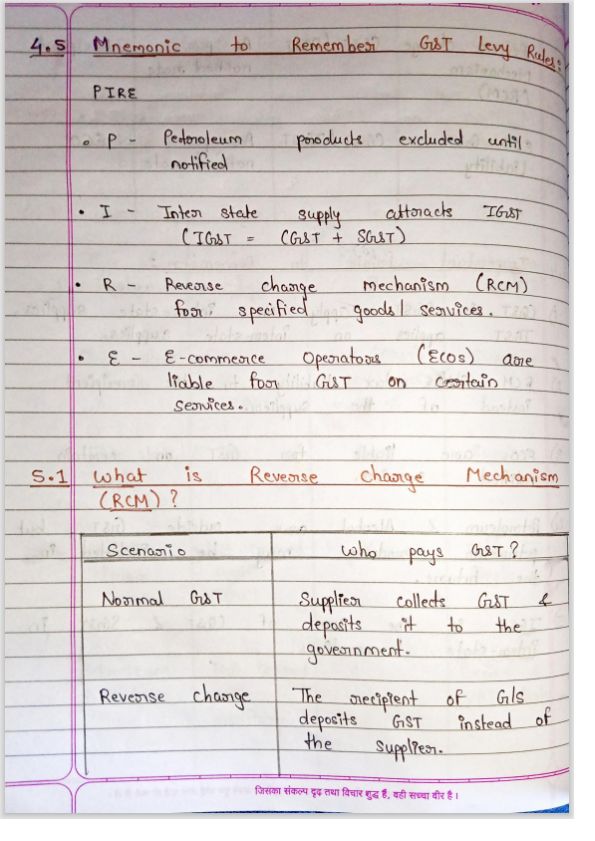 4.5 Mnemonic to Remember GST Levy Rules:
PIRE
• P - Petroleum products excluded until
notified
• I - Inter state supply attracts IGST
(IGST = CGST + SGST)
• R - Reverse charge mechanism (RCM)
for specified goods/services.
• E - E-commerce Operators (ECOs) are
liable for GST on certain
services.
5.1 What is Reverse Charge Mechanism
(RCM) ?
Scenario Who pays GST ?
Normal GST Supplier collects GST &
deposits it to the
government.
Reverse charge The recipient of G/S
deposits GST instead of
the supplier.
जिसका संकल्प दृढ़ तथा विचार शुद्ध हैं, वही सच्चा वीर है।